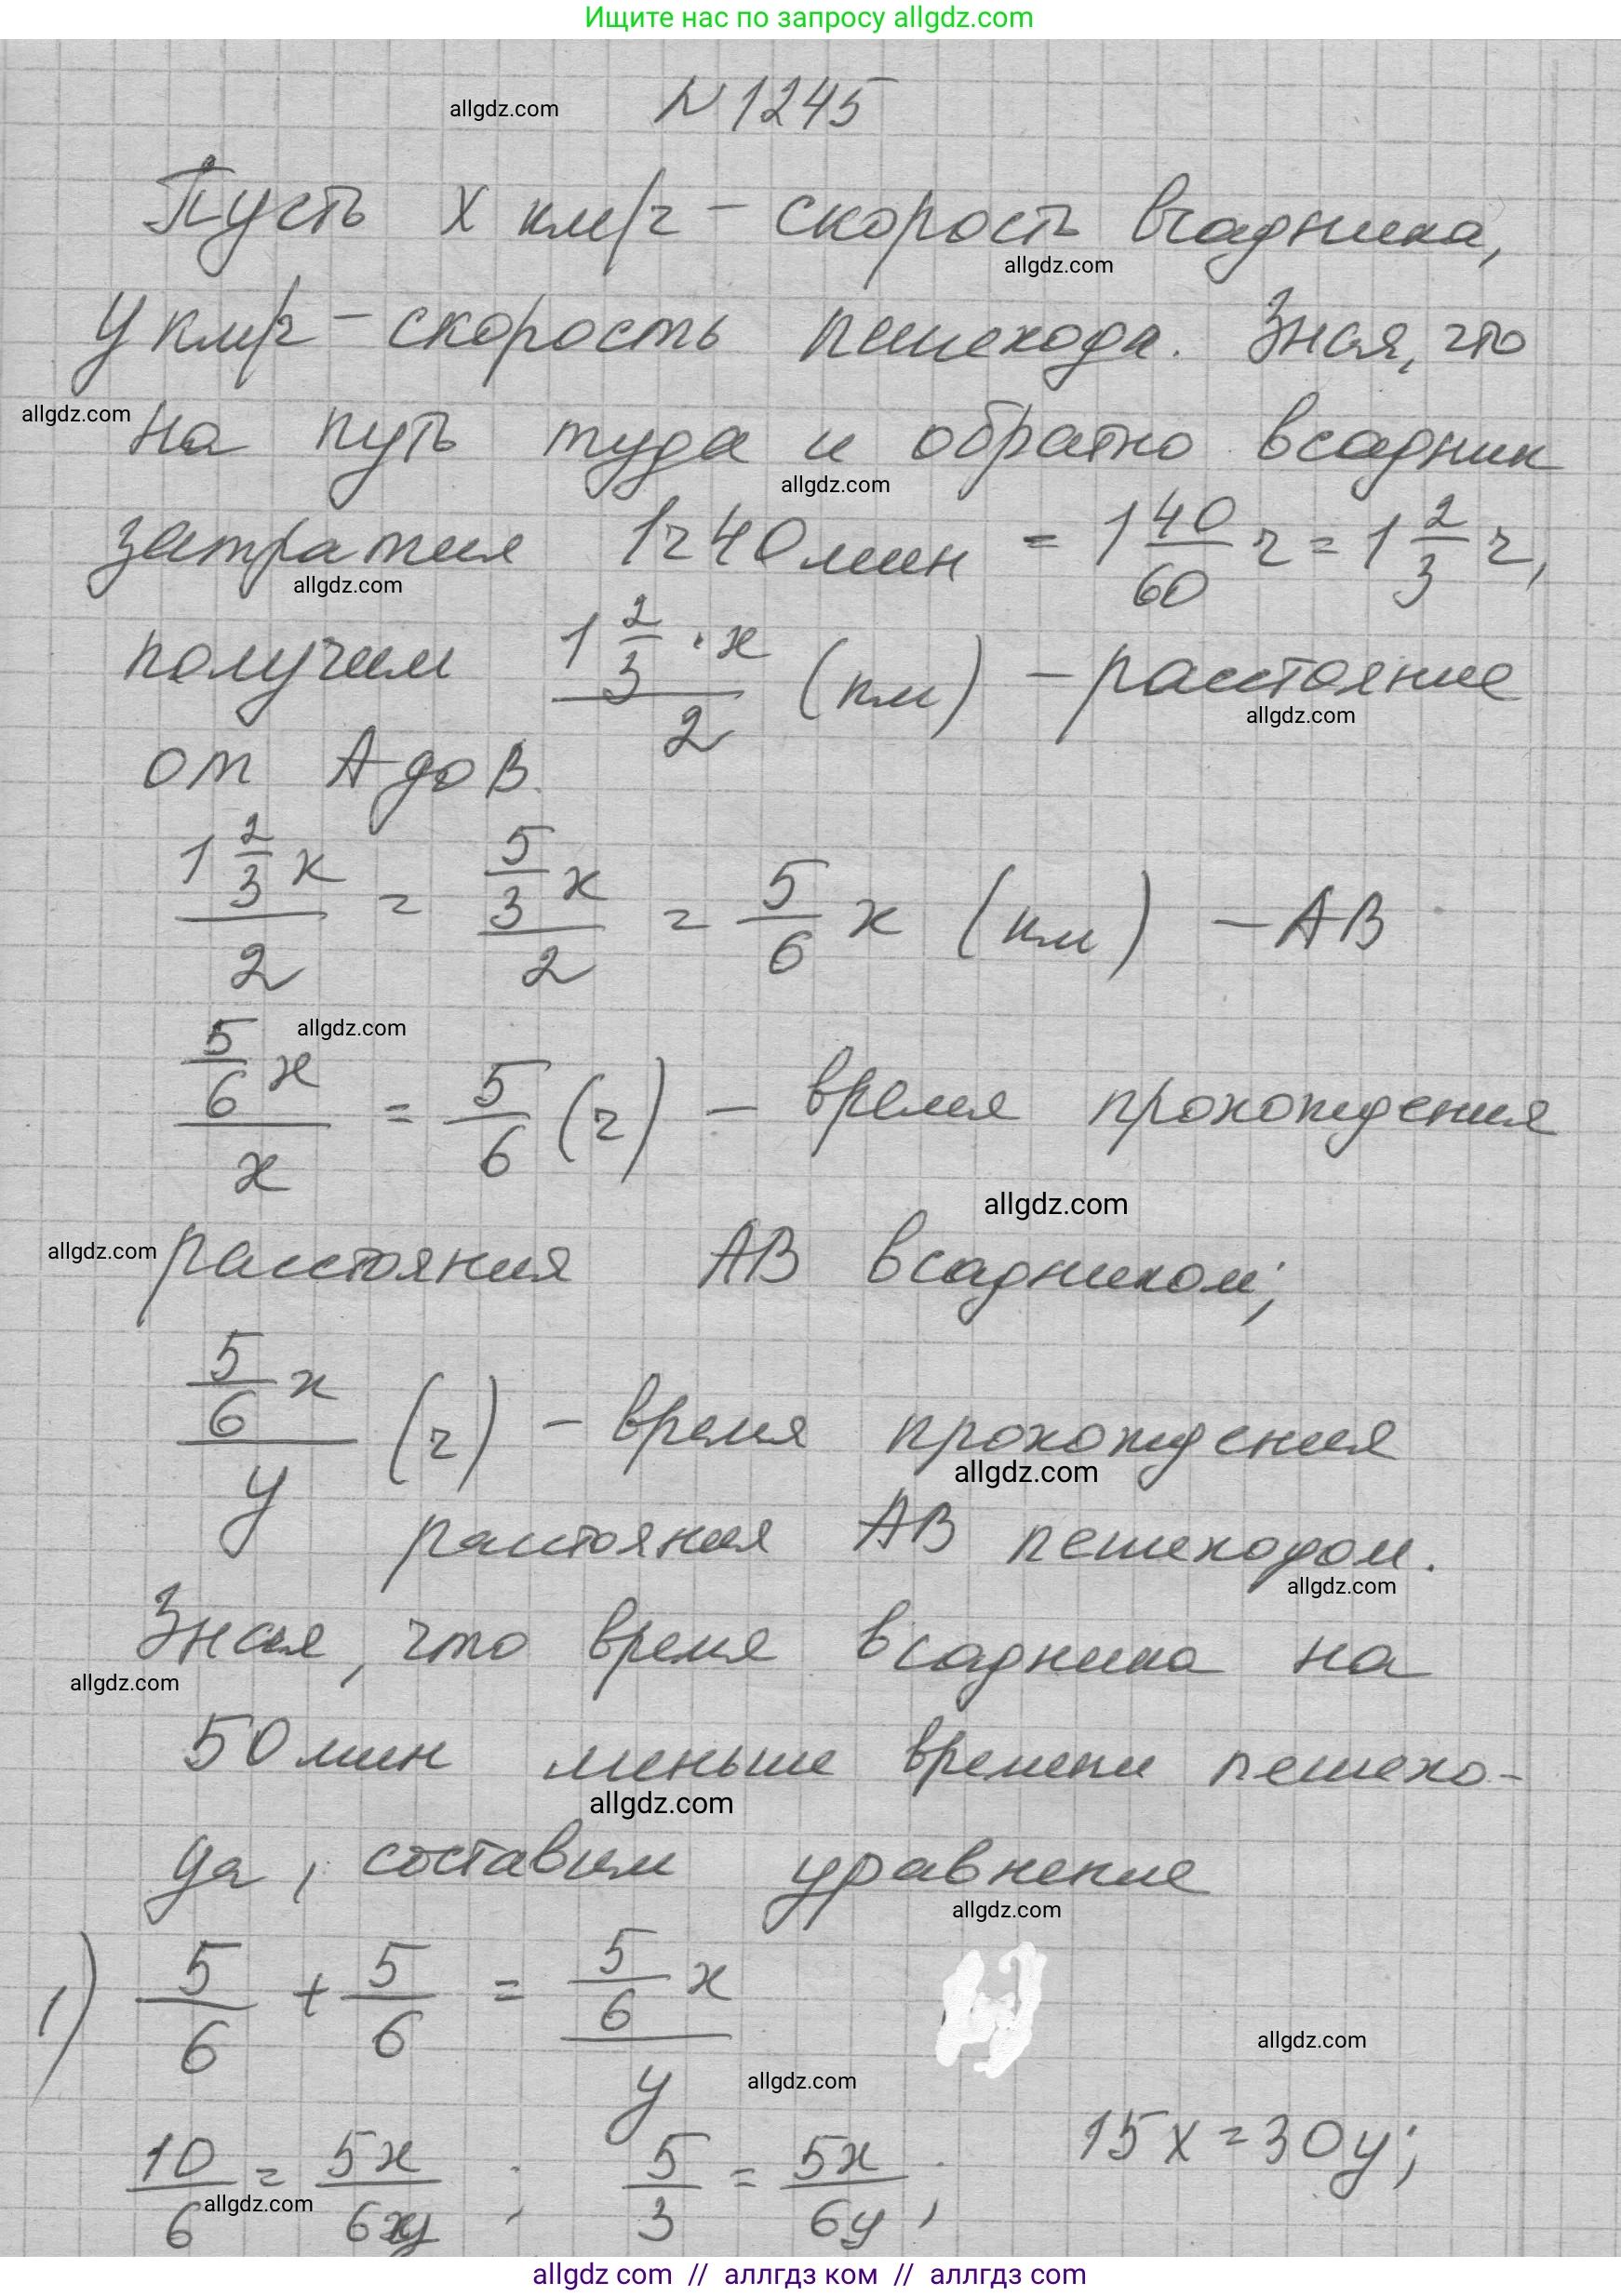 Ищите нас по запросу allgdz.com
allgdz.com
№ 1245
Пусть x км/ч – скорость всадника,
allgdz.com
y км/ч – скорость пешехода. Зная, что
allgdz.com
на путь туда и обратно всадник
allgdz.com
затратил 1ч 40 мин = 1 40/60 ч = 1 2/3 ч,
allgdz.com
получим (1 2/3 · x)/2 (км) – расстояние
allgdz.com
от A до B.
(1 2/3 x)/2 = (5/3 x)/2 = 5/6 x (км) – AB
allgdz.com
(5/6 x)/x = 5/6 (ч) – время прохождения
allgdz.com
allgdz.com
расстояния AB всадником;
(5/6 x)/y (ч) – время прохождения
allgdz.com
расстояния AB пешеходом.
allgdz.com
Зная, что время всадника на
allgdz.com
50 мин меньше времени пешехо-
allgdz.com
да, составим уравнение
allgdz.com
1) 5/6 + 5/6 = (5/6 x)/y
allgdz.com
allgdz.com
10/6 = 5x/6y ; 5/3 = 5x/6y ; 15x = 30y;
allgdz.com
allgdz com // аллгдз ком // аллгдз com